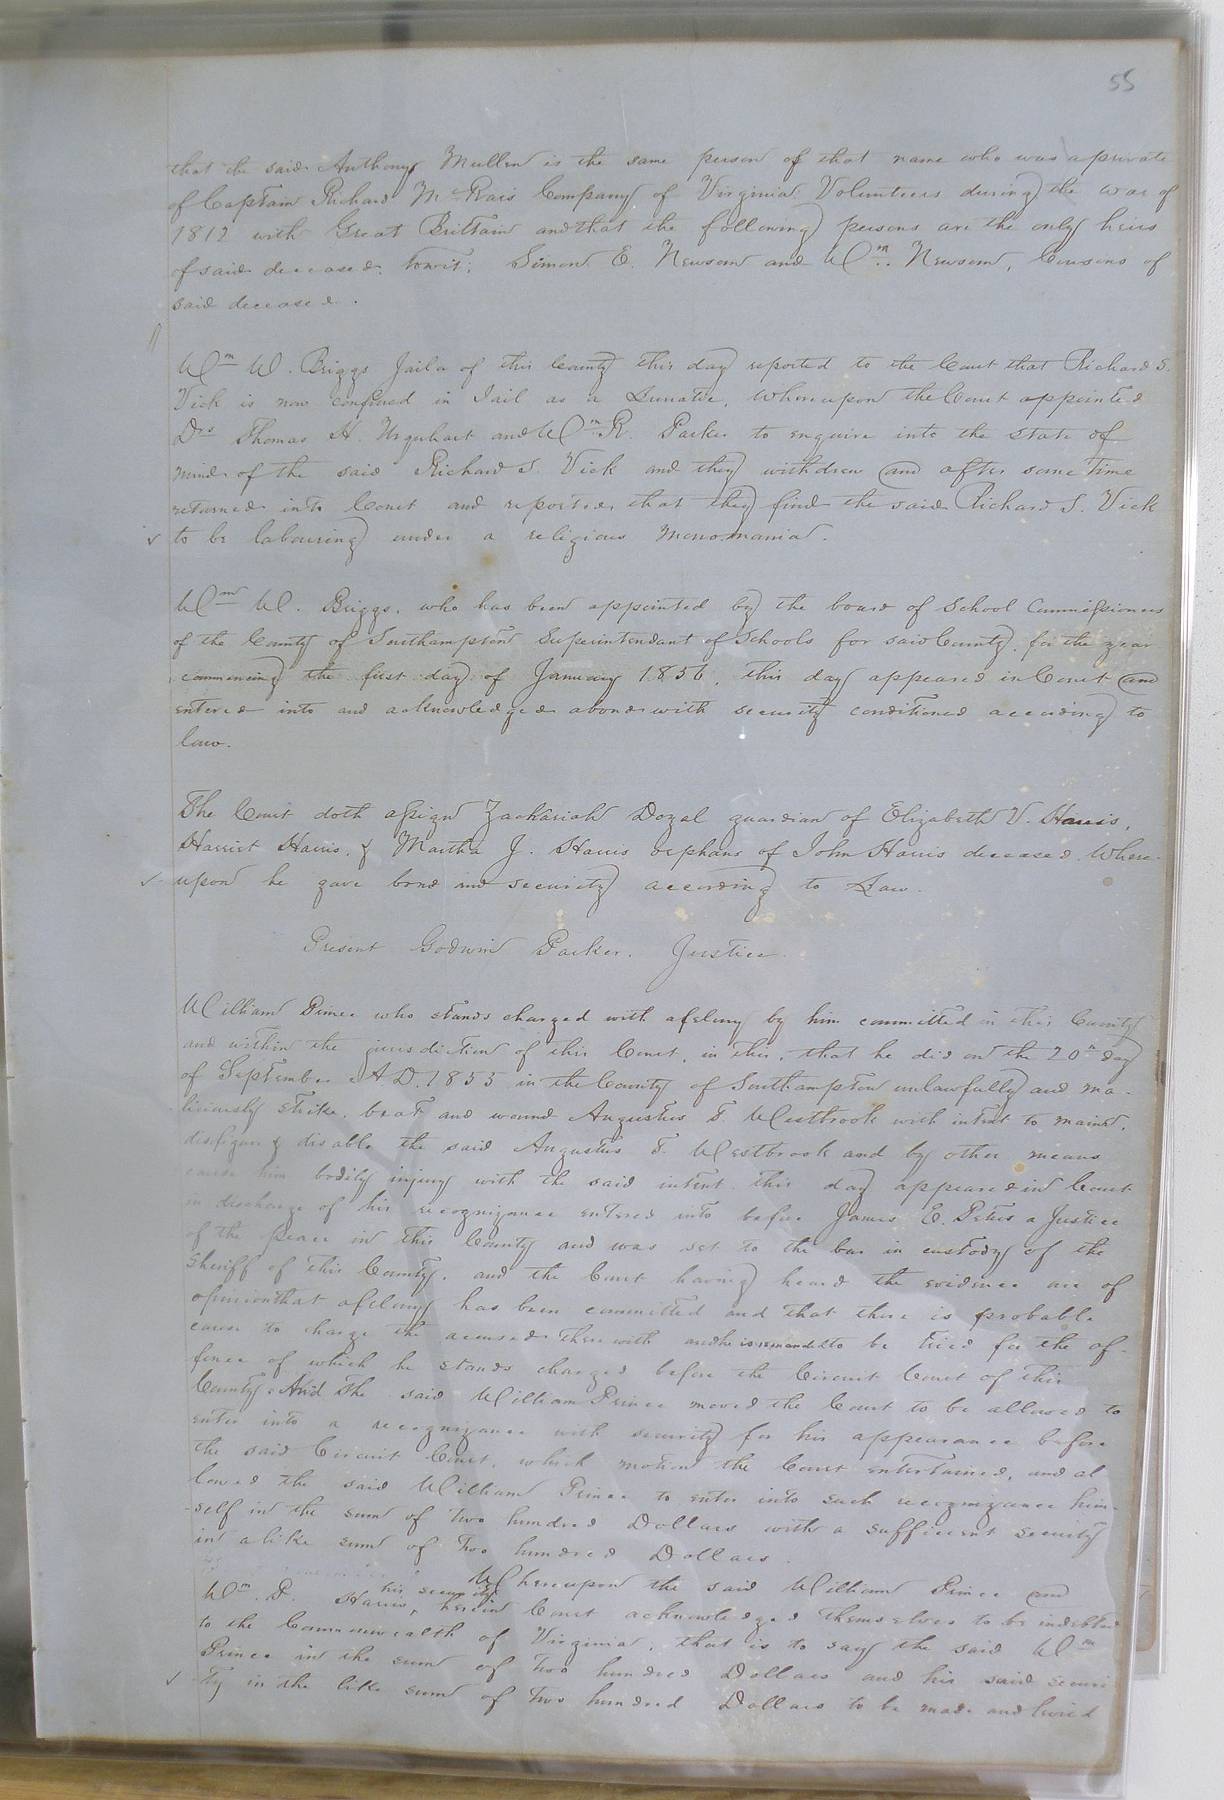 55
that the said Anthony Mullen is the same person of that name who was a private
of Captain Richard McRais Company of Virginia Volunteers during the war of
1812 with Great Brittain and that the following persons are the only heirs
of said deceased. towit: Simon E. Newsom and Wm. Newsom, Cousins of
said deceased.
Wm W. Briggs Jailor of this County this day reported to the Court that Richard S.
Vick is now confined in Jail as a Lunatic, whereupon the Court appointed
Drs Thomas H. Urquhart and Wm R. Parker to enquire into the state of
mind of the said Richard S. Vick and they withdrew and after some time
returned into Court and reported that they find the said Richard S. Vick
to be labouring under a religious monomania.
Wm W. Briggs, who has been appointed by the board of School Commissioners
of the County of Southampton Superintendant of Schools for said County, for the year
commencing the first day of January 1856, this day appeared in Court and
entered into and acknowledged a bond with security conditioned according to
law.
The Court doth assign Zachariah Doyal guardian of Elizabeth V. Harris,
Harriet Harris, & Martha J. Harris orphans of John Harris deceased. Where-
upon he gave bond and security according to Law.
Present Godwin Parker. Justice
William Prince who stands charged with a felony by him committed in this County
and within the jurisdiction of this Court, in this, that he did on the 20th day
of September A.D. 1855 in the County of Southampton unlawfully and ma-
liciously strike, beat and wound Augustus F. Westbrook with intent to maim,
disfigure & disable the said Augustus F. Westbrook and by other means
cause him bodily injury with the said intent this day appeared in Court
in discharge of his recognizance entered into before James E. Peters a Justice
of the peace in this County and was set to the bar in custody of the
Sheriff of this County, and the Court having heard the evidence are of
opinion that a felony has been committed and that there is probable
cause to charge the accused therewith and he is remanded to be tried for the of-
fence of which he stands charged before the Circuit Court of this
County. And the said William Prince moved the Court to be allowed to
enter into a recognizance with security for his appearance before
the said Circuit Court, which motion the Court entertained, and al
lowed the said William Prince to enter into such recognizance him-
-self in the sum of two hundred Dollars with a sufficient security
in a like sum of Two hundred Dollars.
Whereupon the said William Prince and
Wm. P. Harris, his security herein Court acknowledged themselves to be indebted
to the Commonwealth of Virginia, that is to say the said Wm
Prince in the sum of Two hundred Dollars and his said securi
ty in the like sum of Two hundred Dollars to be made and levied